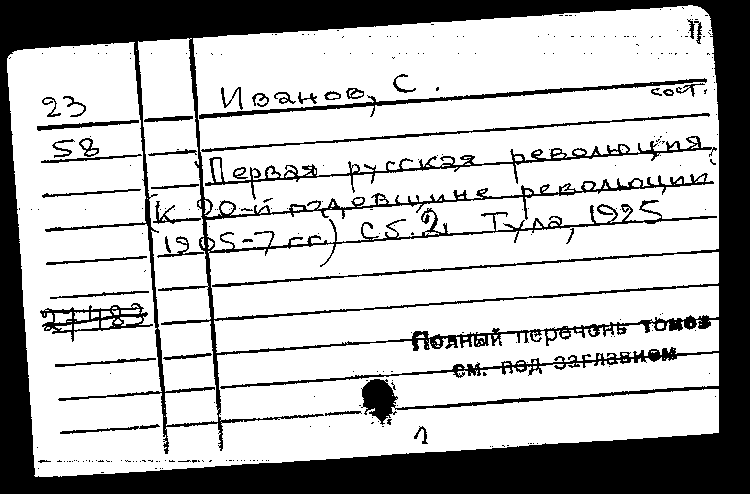 П
Иванов, С.
сост.
23
58
Первая русская революция
(к 20-й годовщине революции
1905-7 гг.) Сб. 2. Тула, 1925
27483
Полный перечень томов
см. под заглавием
1